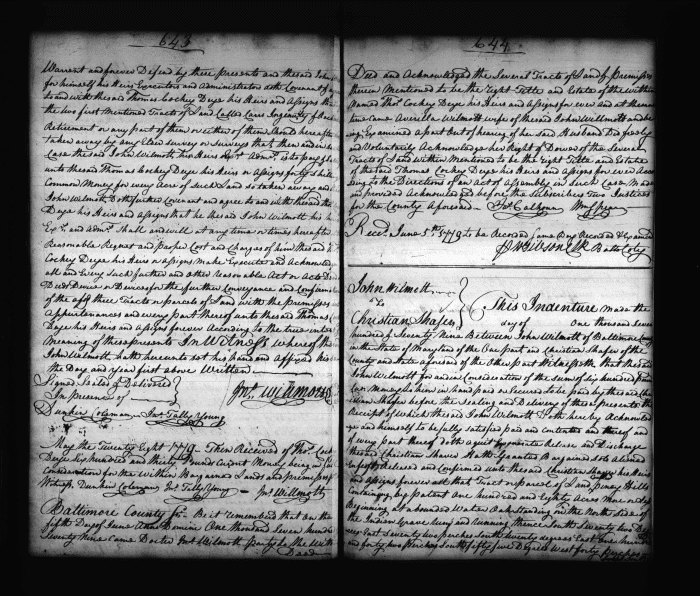 643
Warrant and forever Defend by these presents and the said John
for himself his Heirs Executors and Administrators doth Covenant
to and with the said Thomas Cockey Deye his Heirs and Assigns
the two first Mentioned Tracts of Land Called
Retirement or any part of them or either of them Should hereafter
taken away by any Elder survey or Surveys that then and in
Case the said John Wilmott his Heirs Exrs. Admrs. is to pay
unto the said Thomas Cockey Deye his Heirs or Assigns forty
Common Money for every Acre of such Land so taken away and
John Wilmott Doth further Covenant and agree to and with the said
Deye his Heirs and Assigns that he the said John Wilmott his
Exrs. and Admrs. Shall and will at any time or times hereafter
Reasonable Request and proper Cost and Charges of him the said
Cockey Deye his Heirs or Assigns make Execute and Acknowledge
all and Every such further and other reasonable Act or Acts
Deeds Devise or Devices for the further Conveyance and
of the afd. three Tracts or parcels of Land with the premises
Appurtenances and every part thereof unto the said Thomas
Deye his Heirs and Assigns forever According to the true
Meaning of these presents In Witness whereof the
John Wilmott hath hereunto set his hand and affixed his
the Day and Year first above Written
Signed Sealed & Delivered
In presence of
Jno. Wilmott
May the Twenty Eight 1779. Then Received of Thos.
Deye six hundred and thirty Pounds Current Money being in
Consideration for the within Bargained Lands and premises
Jno. Willmott
Baltimore County Sc. Be it remembered that on the
fifth Day of June Anno Domini One thousand Seven hundred
Seventy Nine Came Jno. Wilmott party to the
Deed
644
Deed and Acknowledged the Several Tracts of Land & Premises
therein Mentioned to be the Right Title and Estate of the within
Named Thos. Cockey Deye his Heirs and Assigns for ever and at the same
time Came Averilla Wilmott wife of the said John Willmott and
Examined apart out of hearing of her said Husband Do freely
and Voluntarily Acknowledge her Right of Dower of the Several
Tracts of Land within Mentioned to be the Right Title and Estate
of the said Thomas Cockey Deye his Heirs and Assigns for ever
to the Directions of an Act of Assembly in such Case Made
provided Acknowledged before the Subscribers Two Justices
for the County Aforesd. Jas. Calhoun Wm. Spear
Recd. June 5th 1779 to be Recorded Same Day Recorded & Examined
Wm. Gibson Clk Balto. Coty.
John Wilmott
To
Christian Shafer
This Indenture made the
day of One thousand Seven
hundred & Seventy Nine Between John Wilmott of Baltimore County
in the State of Maryland of the One part and Christian Shafer of the
County and State aforesaid of the Other part Witnesseth that the said
John Wilmott for and in Consideration of the sum of six hundred
Money to him in hand paid or secured to be paid by the said
Shafer before the Sealing and Delivery of these presents the
Receipt of which the said John Wilmott Doth hereby Acknowledge
and himself to be fully satisfied paid and contented and thereof and
of every part thereof doth acquit Exonerate Release and Discharge
the said Christian Shaver Hath Granted Bargained sold aliened
Enfeoffed Released and Confirmed unto the said Christian Shaffer his Heirs
and Assigns forever all that Tract or parcel of Land Hills
Containing by patent One hundred and Eighty Acres More or less
Beginning at a bounded Water Oak standing on the North side of
the Indian Grave and Running thence South Seventy two
East Seventy two perches South twenty degrees East one hundred
and forty two Perches South fifty five Degrees West forty